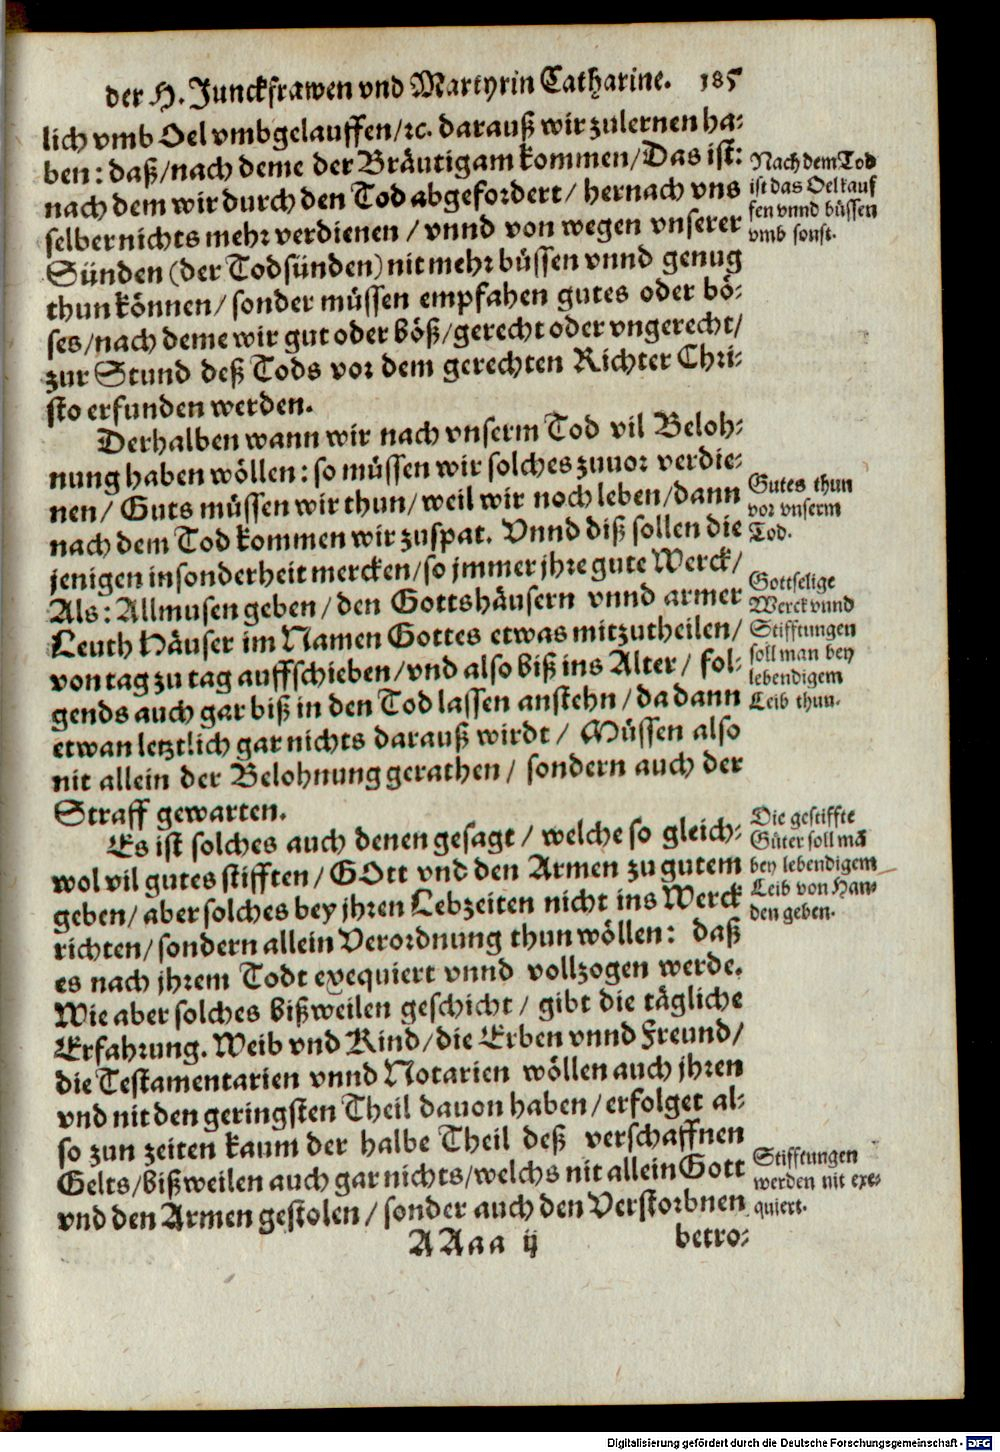 der H. Junckfrawen vnd Martyrin Catharine. 185
lich vmb Oel vmbgelauffen/ꝛc. darauß wir zulernen ha-
ben: daß/nach deme der Bräutigam kommen/Das ist:
nach dem wir durch den Tod abgefordert/ hernach vns
selber nichts mehr verdienen / vnnd von wegen vnserer
Sünden (der Todsünden) nit mehr büssen vnnd genug
thun können/ sonder müssen empfahen gutes oder bö-
ses/nach deme wir gut oder böß/gerecht oder vngerecht/
zur Stund deß Tods vor dem gerechten Richter Chri-
sto erfunden werden.
Nach dem Tod
ist das Oel kauf
fen vnnd büssen
vmb sonst.
Derhalben wann wir nach vnserm Tod vil Beloh-
nung haben wöllen: so müssen wir solches zuuor verdie-
nen/ Guts müssen wir thun/ weil wir noch leben/dann
nach dem Tod kommen wir zuspat. Vnnd diß sollen die
jenigen insonderheit mercken/so jmmer jhre gute Werck/
Als: Allmusen geben/ den Gottshäusern vnnd armer
Leuth Häuser im Namen Gottes etwas mitzutheilen/
von tag zu tag auffschieben/vnd also biß ins Alter/ fol-
gends auch gar biß in den Tod lassen anstehn/da dann
etwan letztlich gar nichts darauß wirdt/ Müssen also
nit allein der Belohnung gerathen/ sondern auch der
Straff gewarten.
Gutes thun
vor vnserm
Tod.
Gottselige
Werck vnnd
Stifftungen
soll man bey
lebendigem
Leib thun.
Es ist solches auch denen gesagt / welche so gleich-
wol vil gutes stifften/ GOtt vnd den Armen zu gutem
geben/ aber solches bey jhren Lebzeiten nicht ins Werck
richten/sondern allein Verordnung thun wöllen: daß
es nach jhrem Todt exequiert vnnd vollzogen werde.
Wie aber solches bißweilen geschicht / gibt die tägliche
Erfahrung. Weib vnd Kind/die Erben vnnd Freund/
die Testamentarien vnnd Notarien wöllen auch jhren
vnd nit den geringsten Theil dauon haben/erfolget al-
so zun zeiten kaum der halbe Theil deß verschaffnen
Gelts/bißweilen auch gar nichts/welchs nit allein Gott
vnd den Armen gestolen/ sonder auch den Verstorbnen
Die gestiffte
Güter soll mā
bey lebendigem
Leib von Han-
den geben.
Stifftungen
werden nit exe-
quiert.
AAaa ij betro-
Digitalisierung gefördert durch die Deutsche Forschungsgemeinschaft - DFG